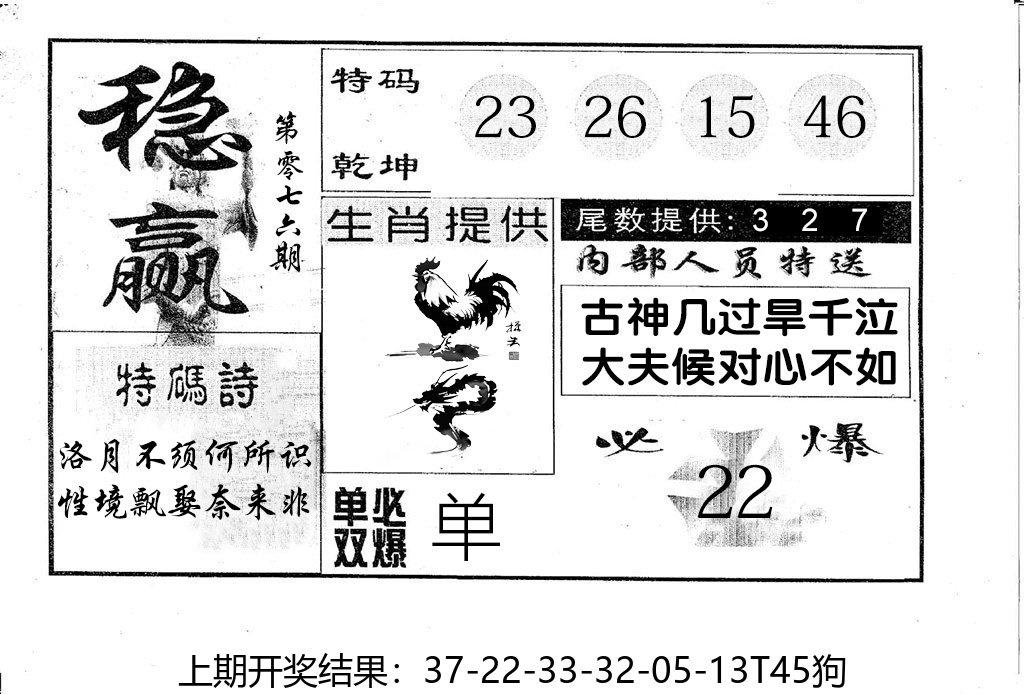 稳赢
第零七六期
特码
乾坤
23 26 15 46
生肖提供
尾数提供: 3 2 7
内部人员特送
古神几过旱千泣
大夫候对心不如
特碼詩
洛月不须何所识
性境飘娶奈来非
必爆
22
单双
必爆
单
上期开奖结果：37-22-33-32-05-13T45狗